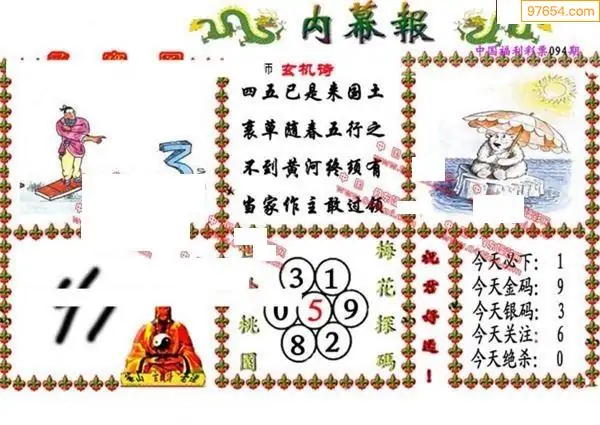 97654.com
内幕報
中国福利彩票094期
币 玄机诗
四五已是来国土
哀草随春五行之
不到黄河终须有
当家作主敢过领
3 1
0 5 9
8 2
桃
圆
梅
花
探
碼
祝
君
好
运
！
今天必下： 1
今天金码： 9
今天银码： 3
今天关注： 6
今天绝杀： 0